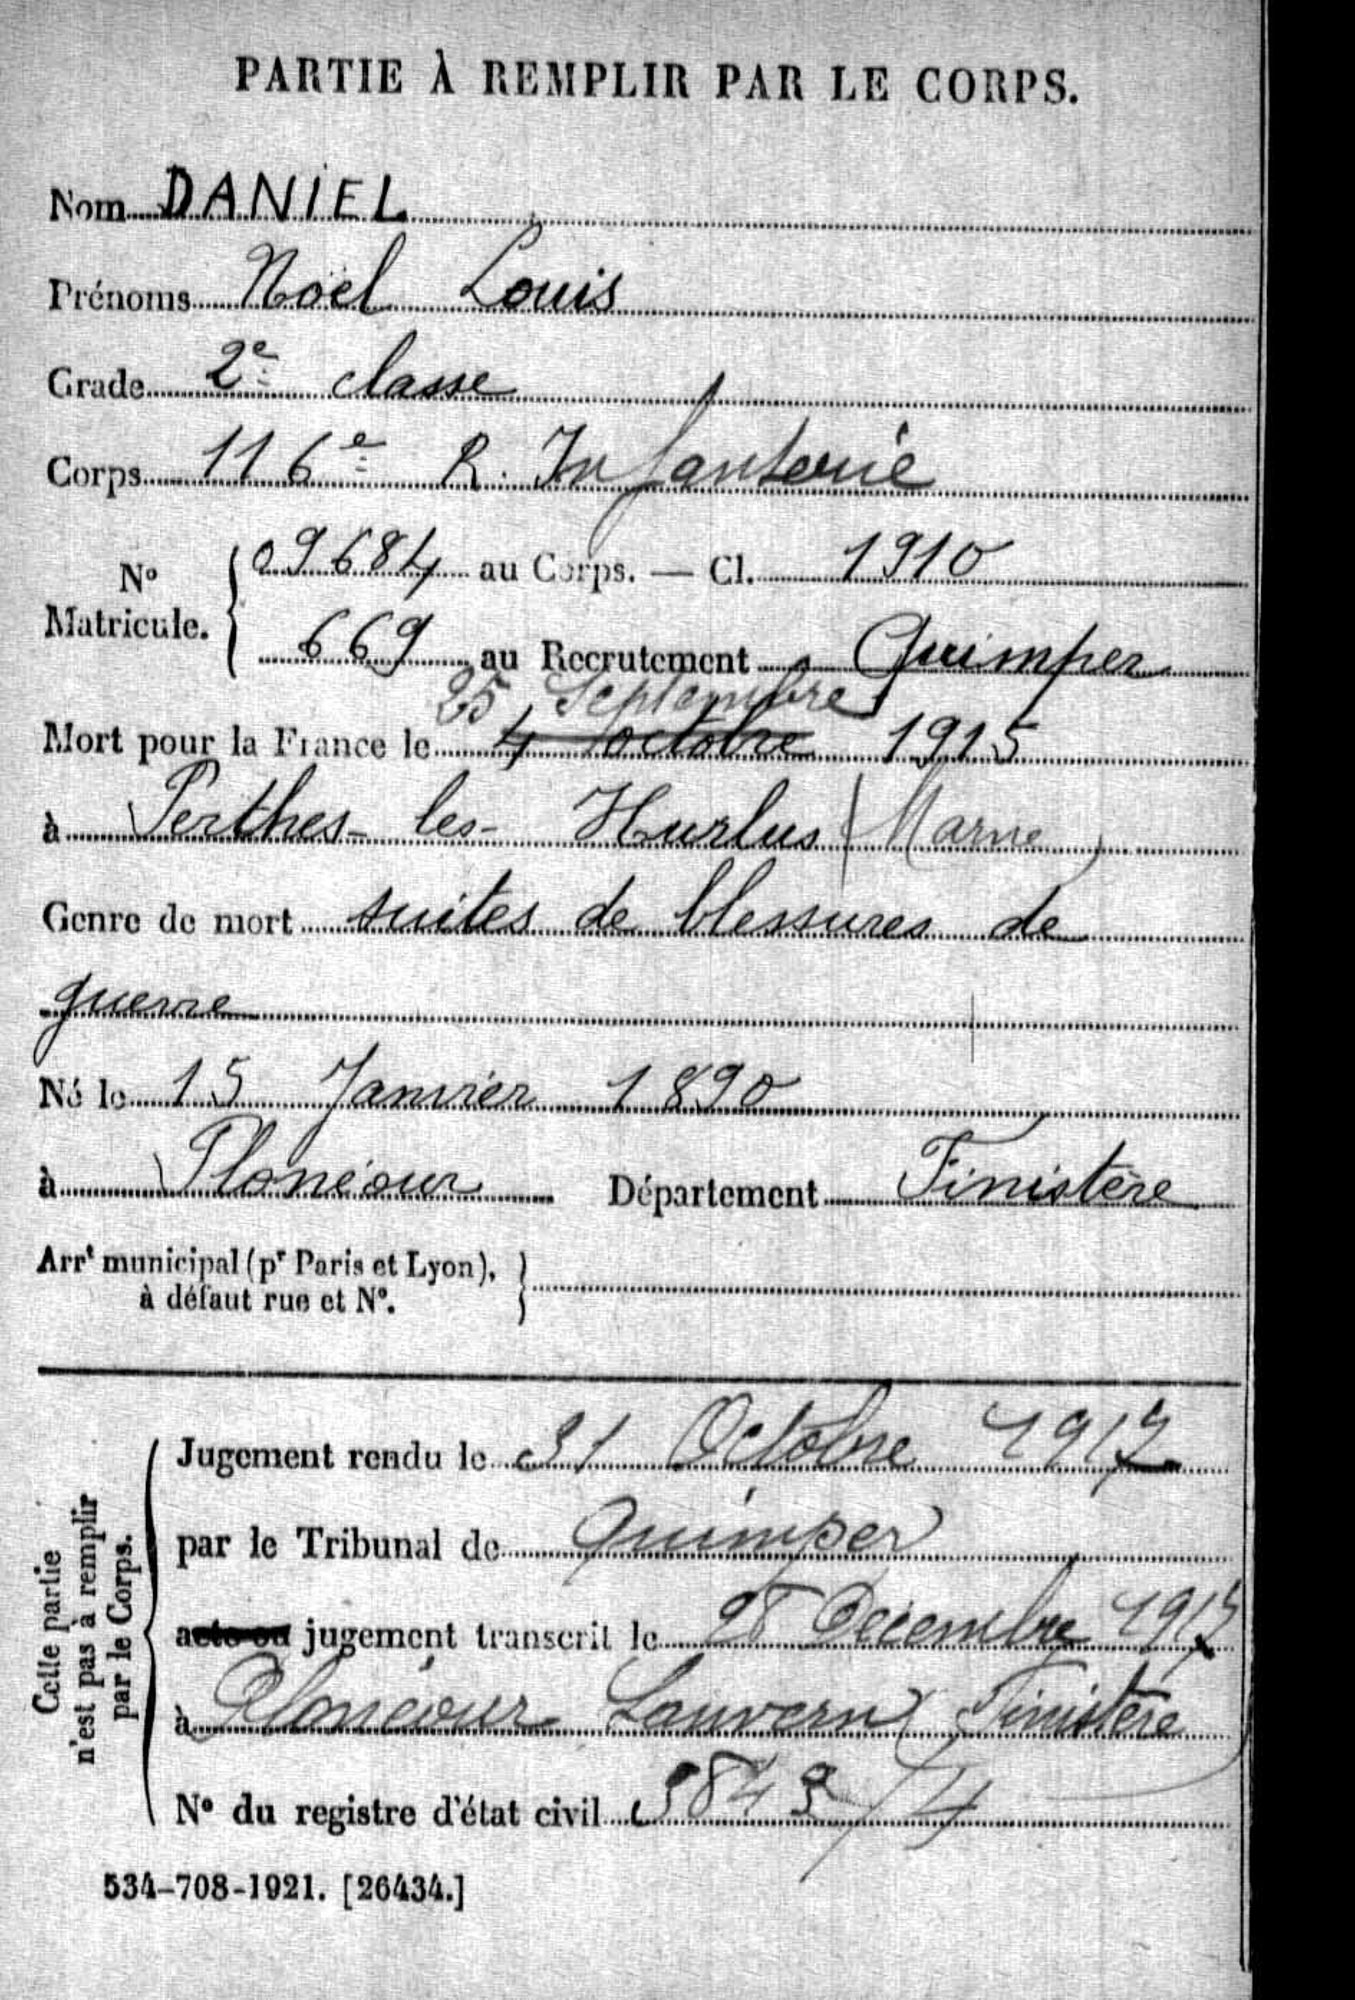 PARTIE À REMPLIR PAR LE CORPS.
Nom DANIEL
Prénoms Noël Louis
Grade 2e classe
Corps 116e R. Infanterie
No Matricule. { 09684 au Corps. — Cl. 1910
669 au Recrutement Quimper
25 Septembre
Mort pour la France le 4 octobre 1915
à Perthes-les-Hurlus (Marne)
Genre de mort suites de blessures de
guerre
Né le 15 Janvier 1890
à Plonéour Département Finistère
Arrt municipal (pr Paris et Lyon),
à défaut rue et No.
Cette partie
n'est pas à remplir
par le Corps.
Jugement rendu le 31 Octobre 1917
par le Tribunal de Quimper
acte ou jugement transcrit le 28 Décembre 1917
à Plonéour Lanvern (Finistère)
No du registre d'état civil 3843/4
534-708-1921. [26434.]